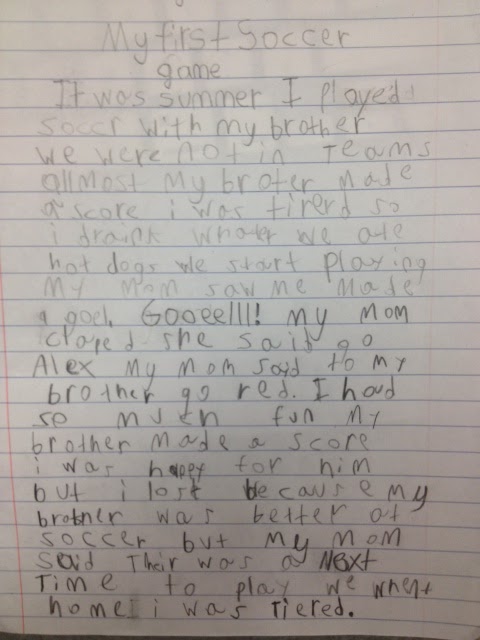 My first Soccer
game
It was summer I played
soccr with my brother
we were not in Teams
allmost my broter made
a score i was tirerd so
i draink whater we ate
hot dogs we start playing
My Mom saw me made
a goel. Gooeelll! my mom
claped she said go
Alex my mom said to my
brother go red. I had
so much fun my
brother made a score
i was happy for him
but i lost because my
brother was better at
soccer but my mom
said Their was a Next
Time to play we whent
home i was Tiered.